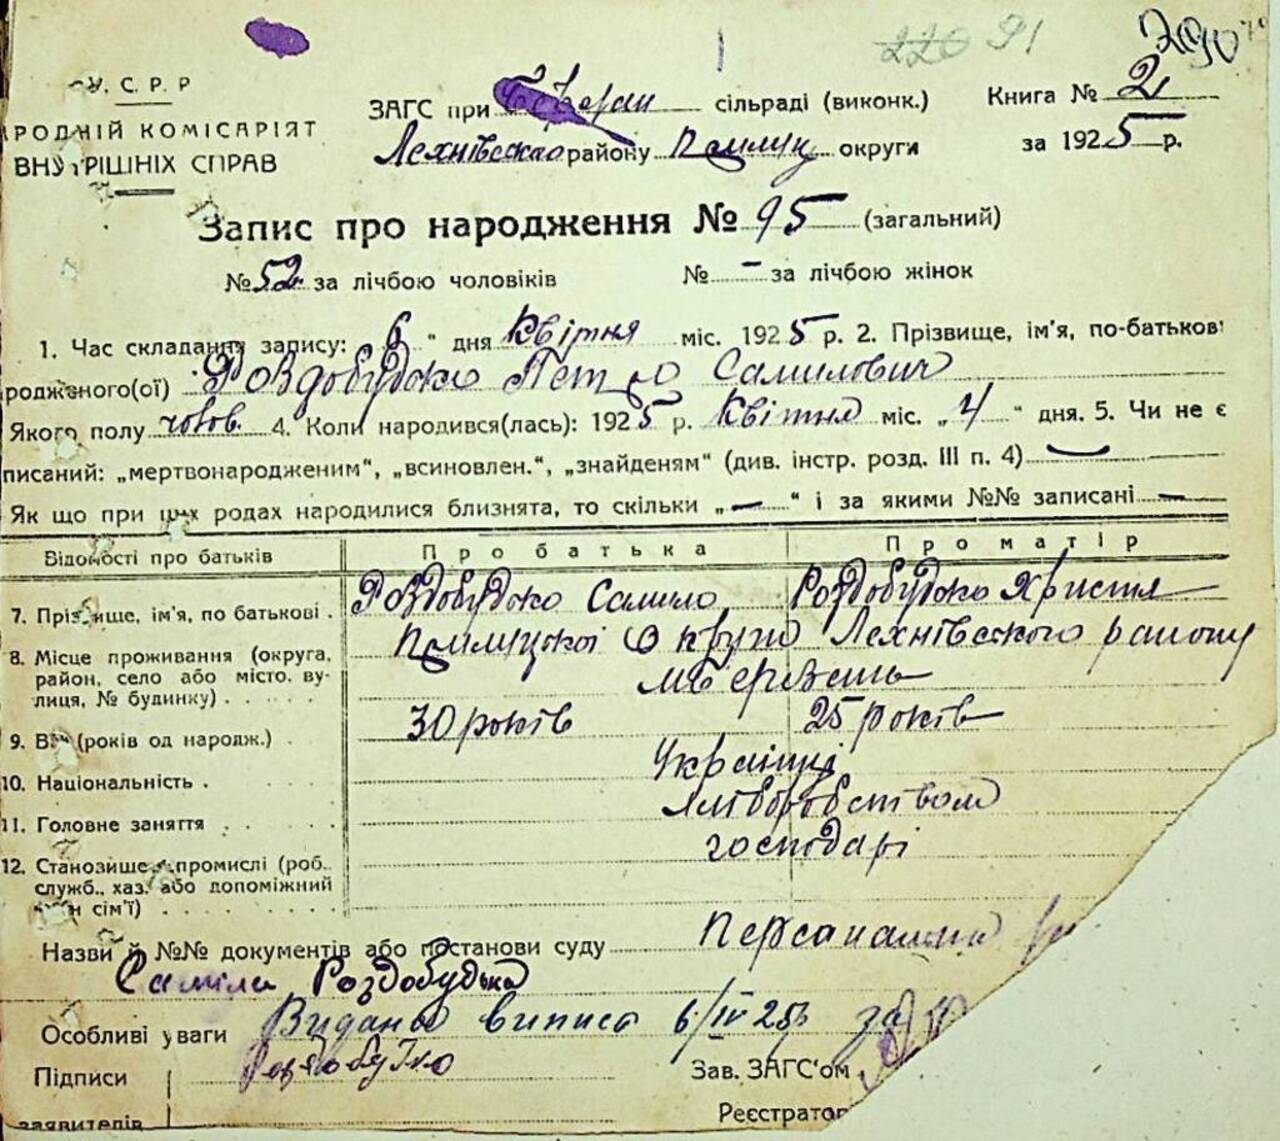 220 91 290
У. С. Р. Р
РОДНІЙ КОМІСАРІЯТ
ВНУТРІШНІХ СПРАВ
ЗАГС при сільраді (виконк.) Книга № 2
Лехнівского району Прилуц. округи за 1925 р.
Запис про народження № 95 (загальний)
№ 52 за лічбою чоловіків № – за лічбою жінок
1. Час складання запису: 6 " дня Квітня міс. 1925 р. 2. Прізвище, ім'я, по-батькові
родженого(ої) Роздобудько Петро Самилович
Якого полу чолов. 4. Коли народився(лась): 1925 р. Квітня міс. „ 4 " дня. 5. Чи не є
писаний: „мертвонародженим", „всиновлен.", „знайденям" (див. інстр. розд. III п. 4) —
Як що при цих родах народилися близнята, то скільки „ — " і за якими №№ записані —
Відомості про батьків Про батька Про матір
7. Прізвище, ім'я, по батькові . Роздобудько Самило Роздобудько Христя
8. Місце проживання (округа, Прилуцкої Округи Лехнівского району
район, село або місто, ву- м Березань
лиця, № будинку) . . . . .
9. Вік (років од народж.) . 30 років 25 років
10. Національність . Українці
11. Головне заняття . . . . Хліборобством
12. Становище в промислі (роб. господарі
служб., хаз. або допоміжний
член сім'ї) . . . . . . .
Назви й №№ документів або постанови суду
Саміла Роздобудька
Особливі уваги Видано випис 6/IV 25р за
Підписи Роздобудко Зав. ЗАГС'ом
заявителів Реєстратор